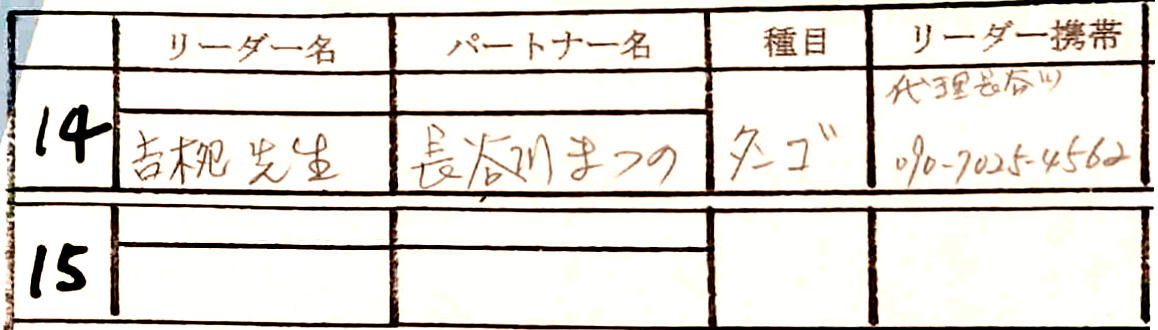 リーダー名 パートナー名 種目 リーダー携帯
代理長谷川
14 吉柳先生 長谷川まつの タンゴ 090-7025-4562
15